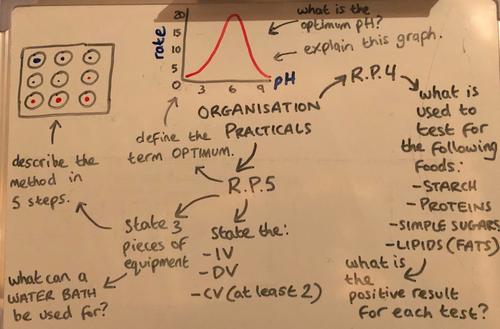 20
15
10
5
0
rate
3 6 9 pH
what is the
optimum pH?
explain this graph.
ORGANISATION
PRACTICALS
define the
term OPTIMUM.
R.P.4
what is
used to
test for
the following
foods:
- STARCH
- PROTEINS
- SIMPLE SUGARS
- LIPIDS (FATS)
what is
the
positive result
for each test?
R.P.5
describe the
method in
5 steps.
State 3
pieces of
equipment
State the:
- IV
- DV
- CV (at least 2)
what can a
WATER BATH
be used for?